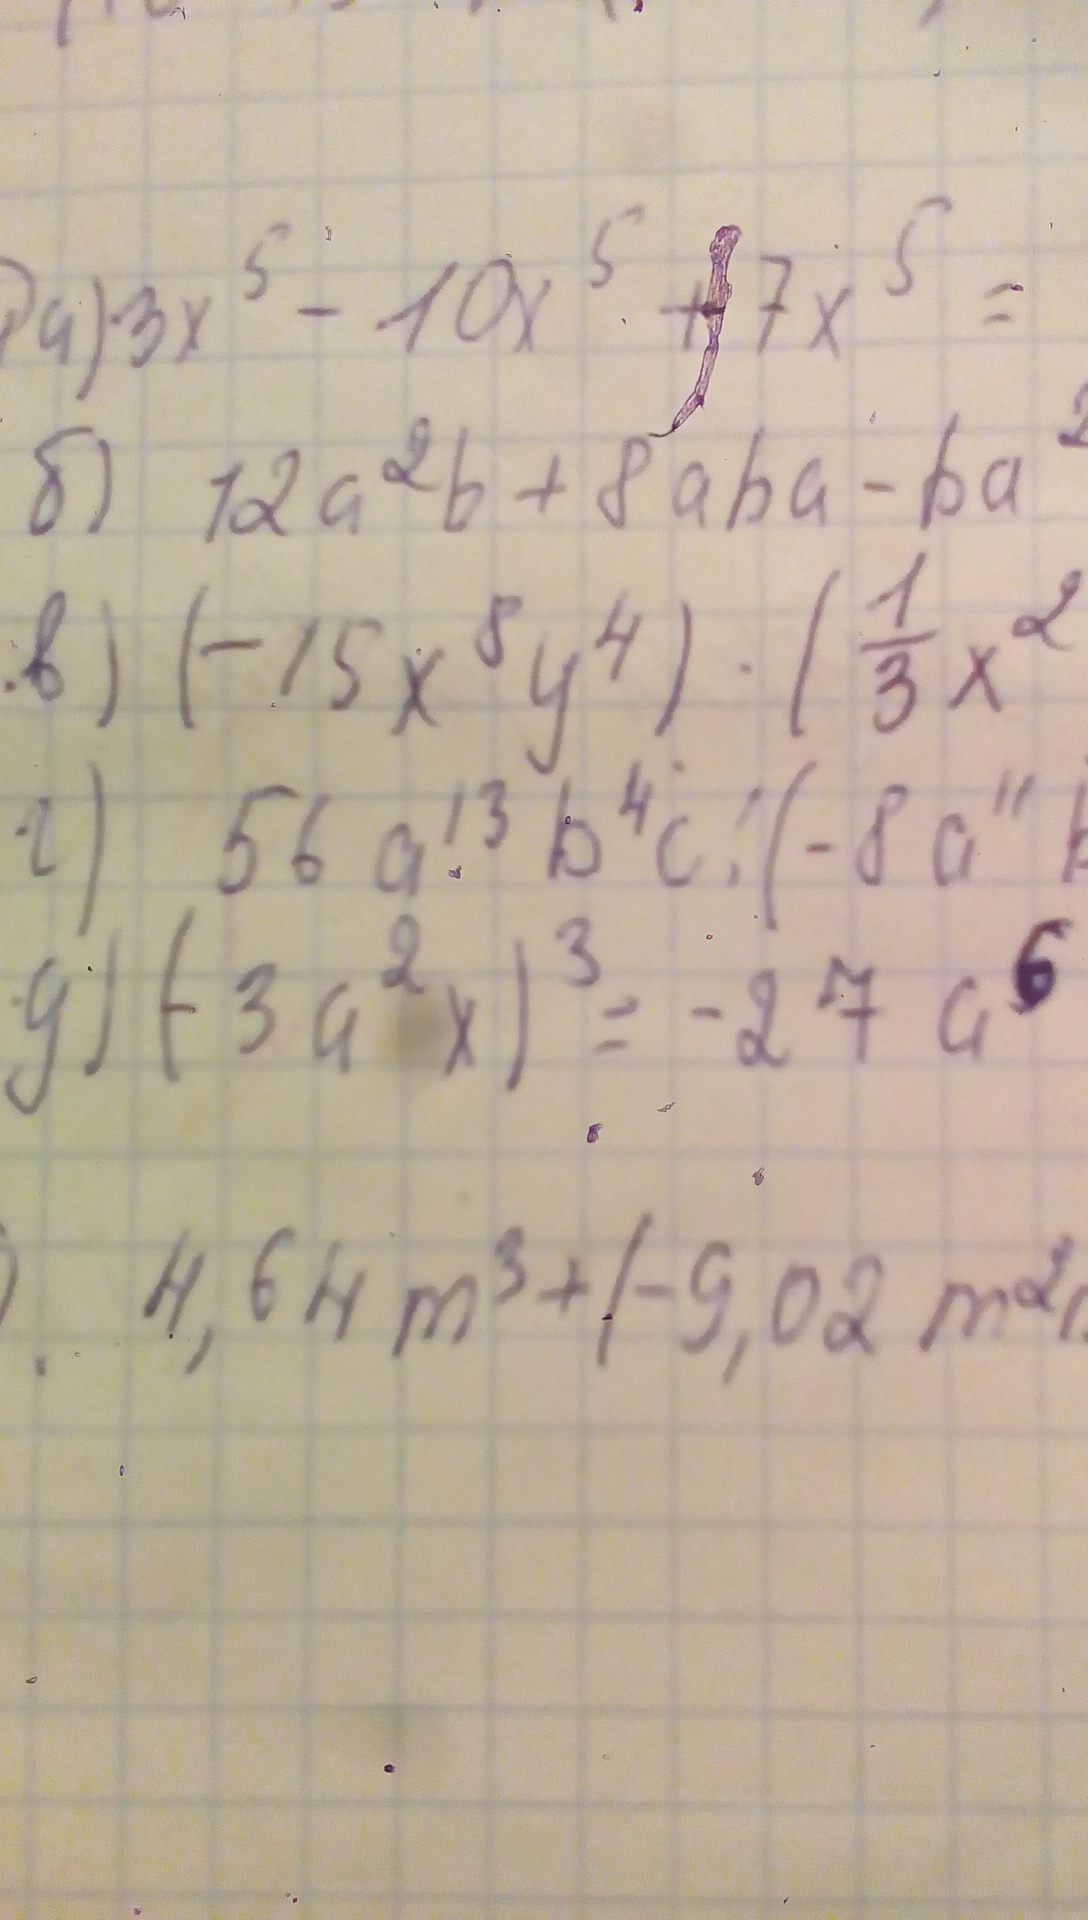 а) 3x⁵ - 10x⁵ + 7x⁵ =
б) 12a²b + 8aba - ba²
в) (-15x⁸y⁴) · (1/3 x²
г) 56a¹³b⁴c : (-8a¹¹b
д) (-3a²x)³ = -27a⁶
4,64m³ + (-9,02m²n